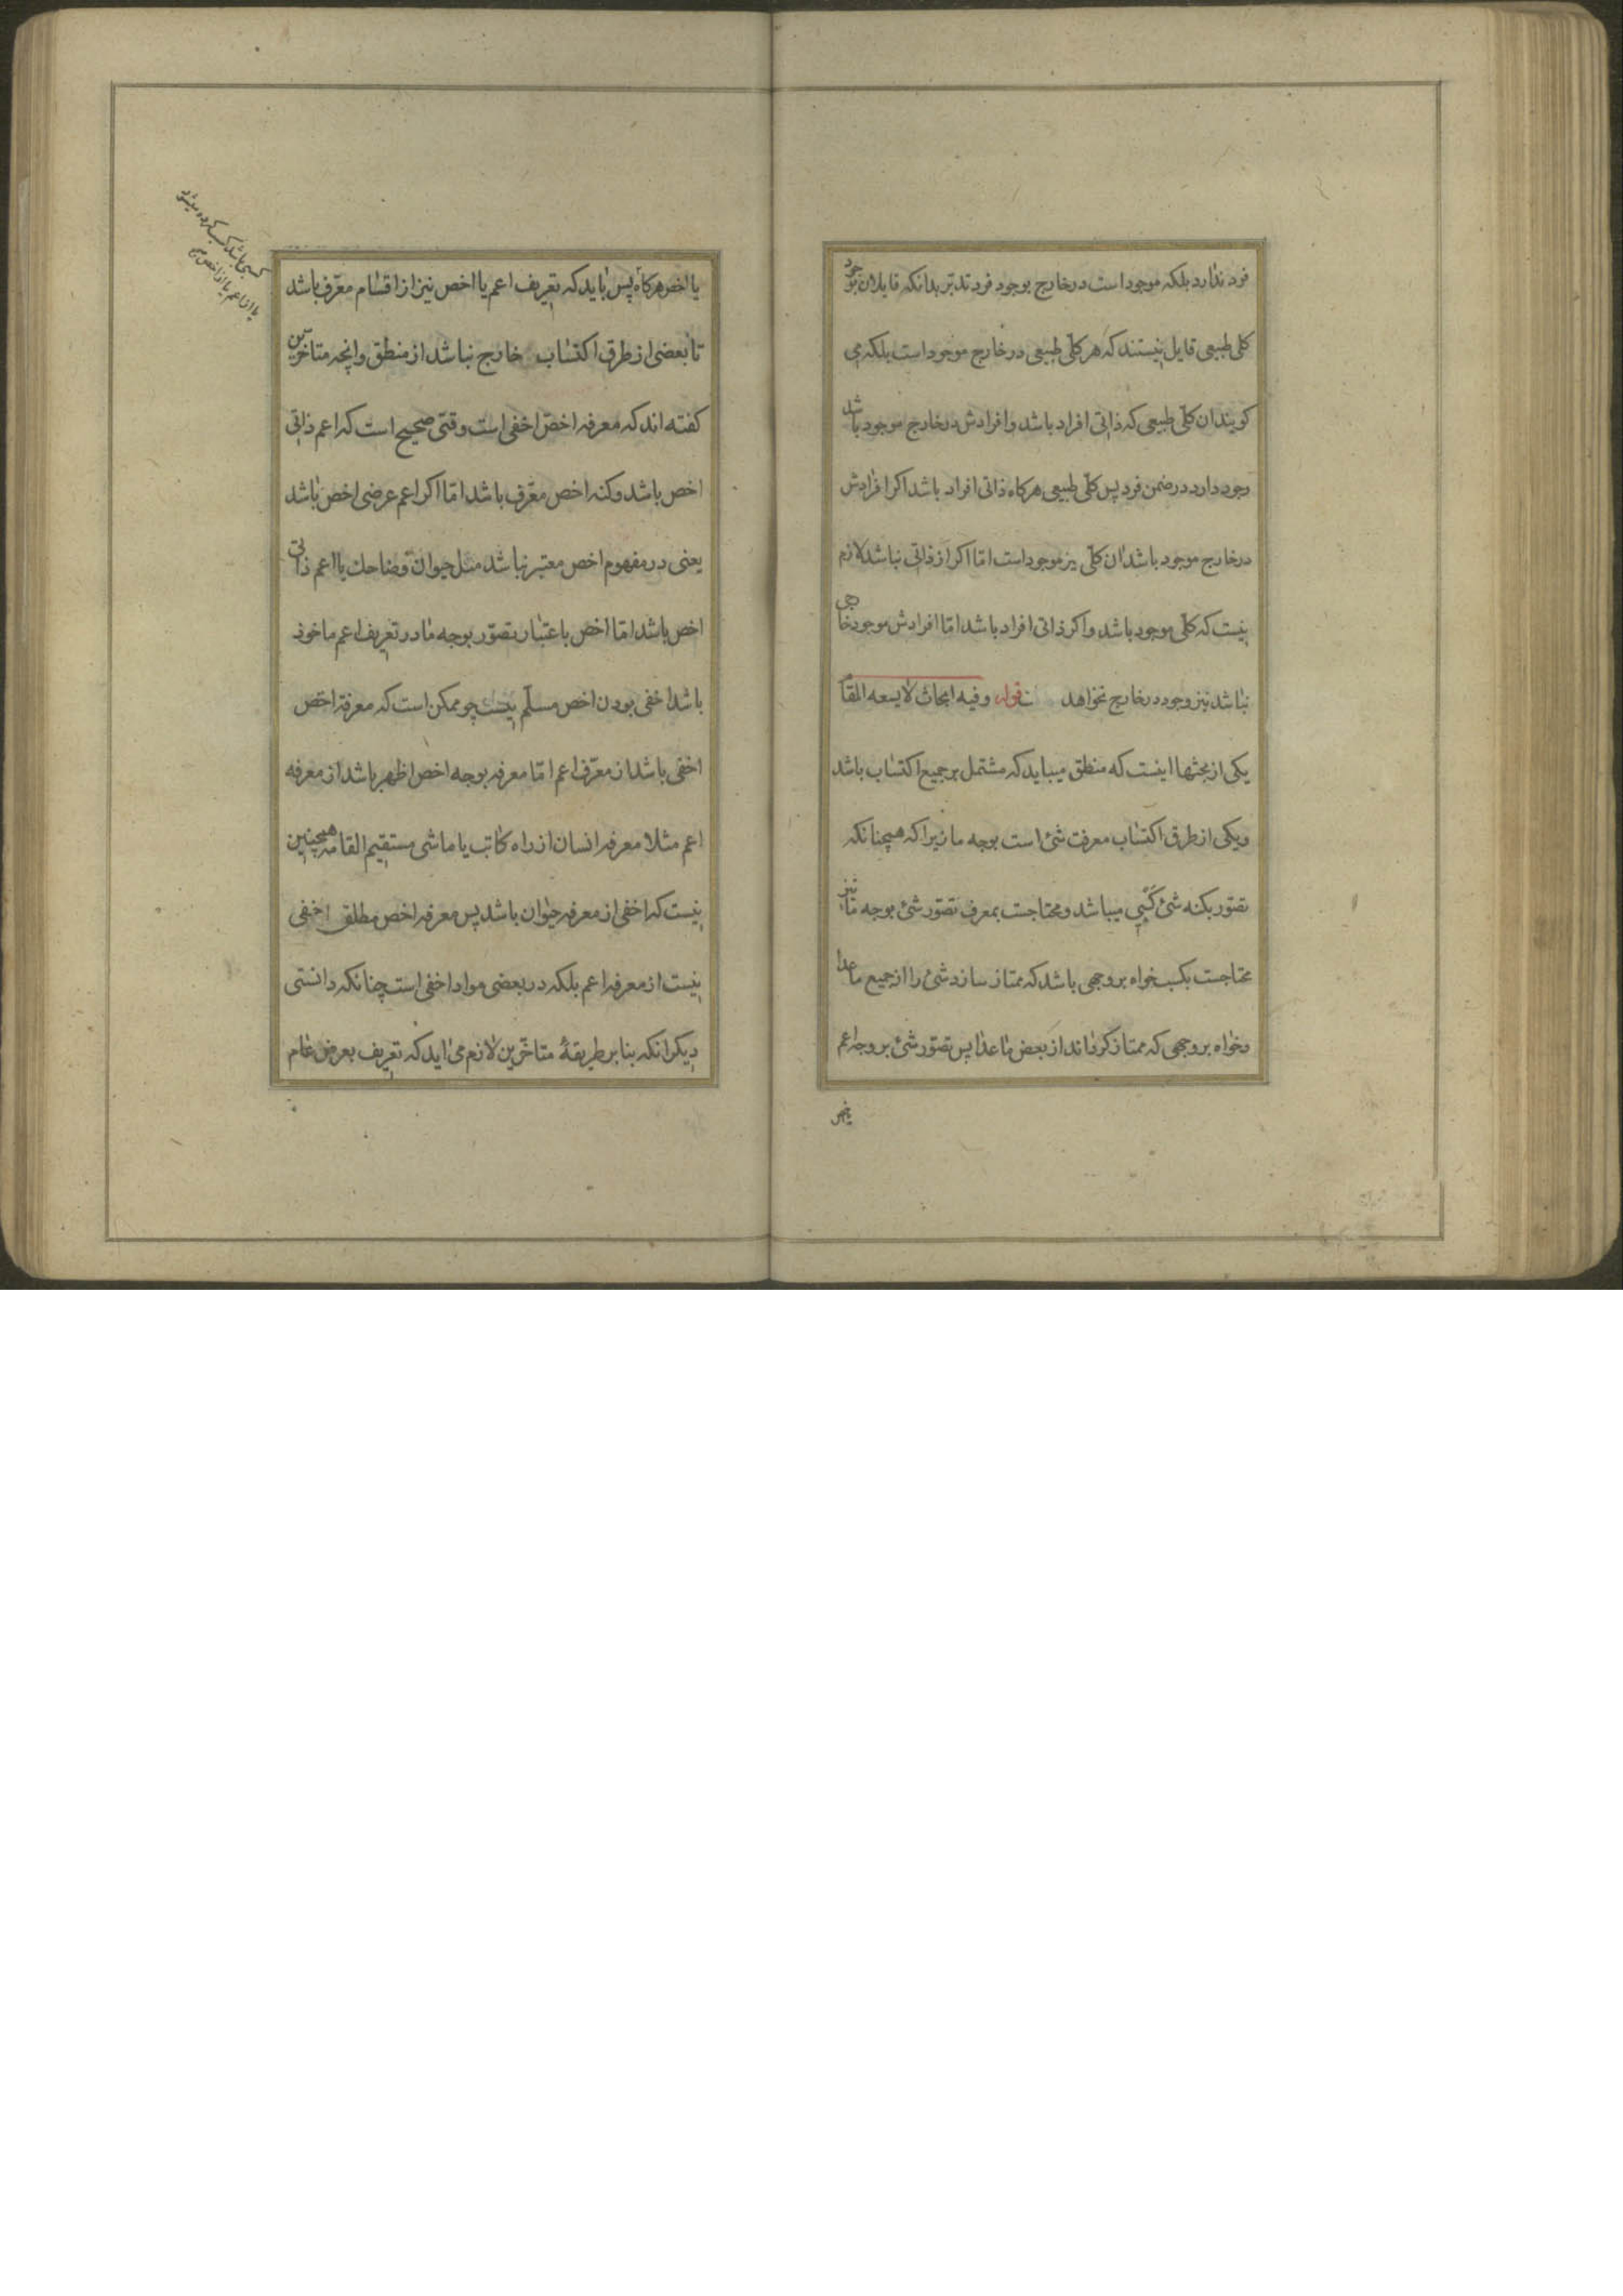 فرد ندارد بلکه موجود است در خارج بوجود فرد تدبّر بدانکه قایلان بوجود
کلی طبیعی قایل نیستند که هر کلّی طبیعی در خارج موجود است بلکه می
کویند ان کلّی طبیعی که ذاتی افراد باشد و افرادش در خارج موجود باشد
وجود دارد در ضمن فرد پس کلّی طبیعی هرکاه ذاتی افراد باشد اکر افرادش
در خارج موجود باشد ان کلّی نیز موجود است امّا اکر از ذاتی نباشد لازم
نیست که کلّی موجود باشد و اکر ذاتی افراد باشد امّا افرادش موجود خارجی
نباشد نیز وجود در خارج نخواهد قوله وفیه ابحاث لا یسعه المقام
یکی از بحثها اینست که منطق میباید که مشتمل بر جمیع اکتساب باشد
ویکی از طرق اکتساب معرفت شئ است بوجه ما زیرا که همچنانکه
تصوّر بکنه شئ کسبی میباشد و محتاجست بمعرف تصوّر شئ بوجه ما نیز
محتاجست بکسب خواه بر وجهی باشد که ممتاز سازد شئ را از جمیع ما عدا
وخواه بر وجهی که ممتاز کرداند از بعض ما عدا پس تصوّر شئ بر وجه اعم
یا اخص هرکاه پس باید که تعریف اعم یا اخص نیز از اقسام معرّف باشد
تا بعضی از طرق اکتساب خارج نباشد از منطق وانچه متاخرین
کفته اند که معرفه اخصّ اخفی است وقتی صحیح است که اعم ذاتی
اخص باشد وکنه اخص معرّف باشد امّا اکر اعم عرضی اخص باشد
یعنی در مفهوم اخص معتبر نباشد مثل حیوان وضاحك یا اعم ذاتی
اخص باشد امّا اخص باعتبار تصوّر بوجه ما در تعریف اعم ماخوذ
باشد اخفی بودن اخص مسلّم نیست چو ممکن است که معرفة اخص
اخفی باشد از معرّف اعم امّا معرفه بوجه اخص اظهر باشد از معرفه
اعم مثلا معرفه انسان از راه کاتب یا ماشی مستقیم القامه همچنین
نیست که اخفی از معرفه حیوان باشد پس معرفه اخص مطلق اخفی
نیست از معرفه اعم بلکه در بعضی مواد اخفی است چنانکه دانستی
دیکر انکه بنابر طریقهٔ متاخّرین لازم می اید که تعریف بعرض عام
کسبی باشد کسب کرده میشود
یا از اعم یا از اخص صح